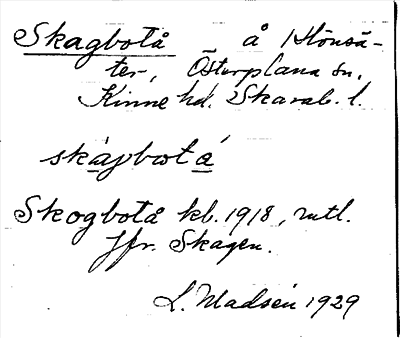 Skagbotå å Hönsä-
ter, Österplana sn,
Kinne hd. Skarab. l.
skágbotá
Skogbotå kb. 1918, mtl.
Jfr. Skagen.
L. Madsén 1929